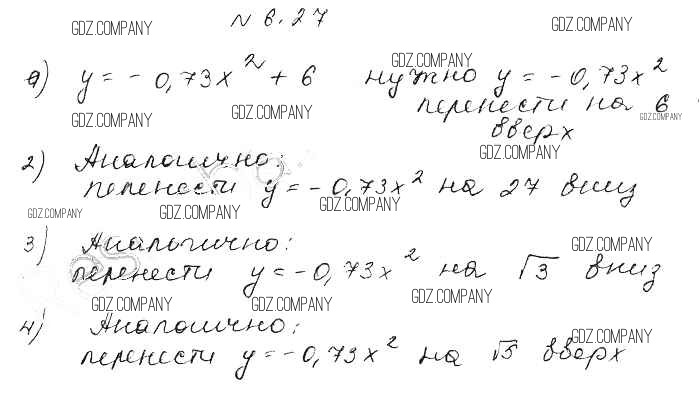 N 6.27
GDZ.COMPANY GDZ.COMPANY
а) y = - 0,73x² + 6 нужно y = - 0,73x²
GDZ.COMPANY
перенести на 6
GDZ.COMPANY GDZ.COMPANY GDZ.COMPANY
вверх
GDZ.COMPANY
2) Аналогично:
перенести y = - 0,73x² на 27 вниз
GDZ.COMPANY GDZ.COMPANY GDZ.COMPANY
3) Аналогично: GDZ.COMPANY
перенести y = - 0,73x² на √3 вниз
GDZ.COMPANY GDZ.COMPANY GDZ.COMPANY
4) Аналогично: GDZ.COMPANY
перенести y = - 0,73x² на √5 вверх